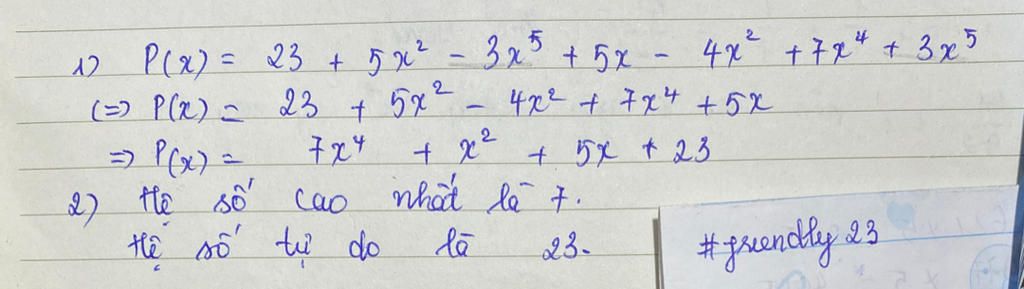 1) P(x) = 23 + 5x² - 3x⁵ + 5x - 4x² + 7x⁴ + 3x⁵
(=) P(x) = 23 + 5x² - 4x² + 7x⁴ + 5x
=) P(x) = 7x⁴ + x² + 5x + 23
2) Hệ số cao nhất là 7.
Hệ số tự do là 23.
#friendly 23